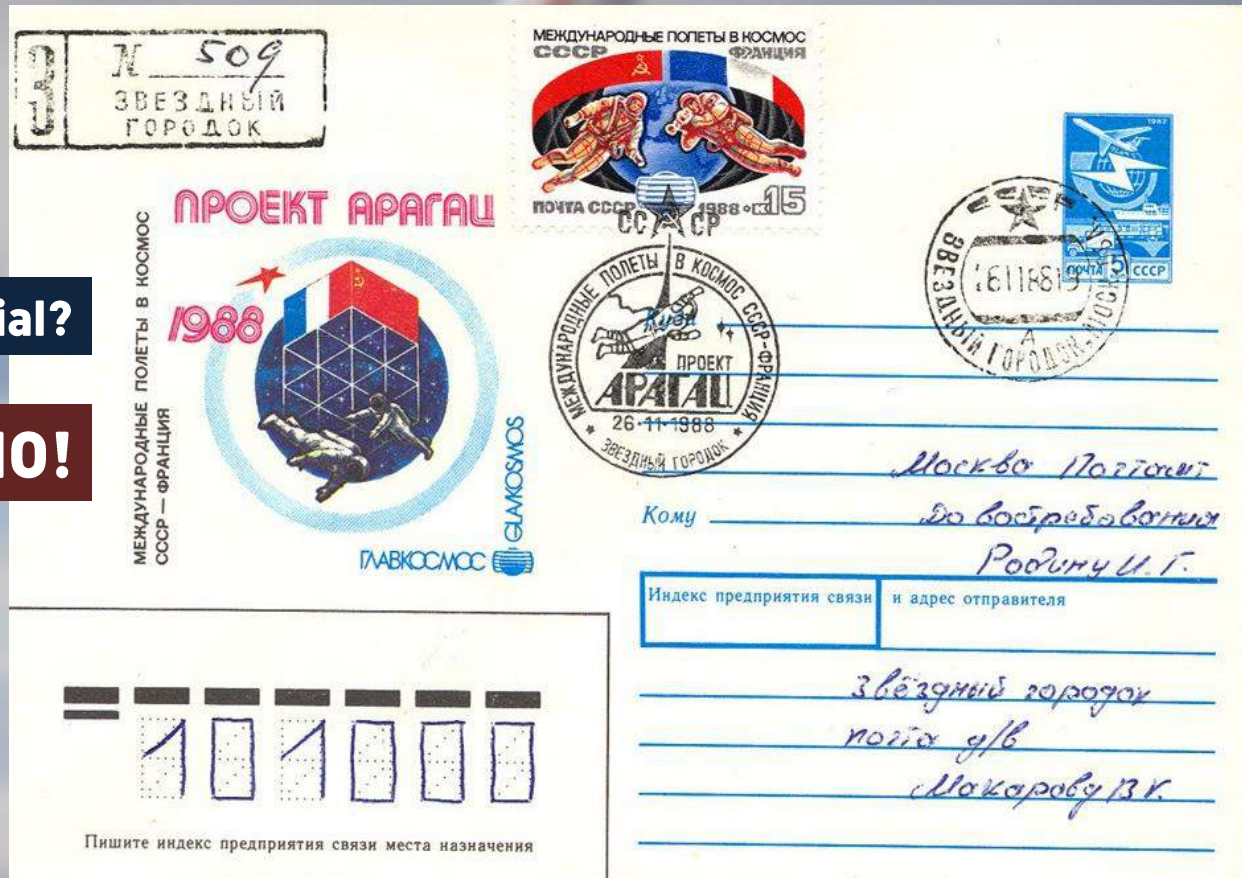 N 509
З
ЗВЕЗДНЫЙ
ГОРОДОК
МЕЖДУНАРОДНЫЕ ПОЛЕТЫ В КОСМОС
СССР ФРАНЦИЯ
ПОЧТА СССР 1988 к15
1982
ПОЧТА 5 СССР
ЗВЕЗДНЫЙ ГОРОДОК МОСК
А
ial?
NO!
ПРОЕКТ АРАГАЦ
1988
МЕЖДУНАРОДНЫЕ ПОЛЕТЫ В КОСМОС
СССР — ФРАНЦИЯ
ГЛАВКОСМОС
GLAVKOSMOS
СССР
МЕЖДУНАРОДНЫЕ ПОЛЕТЫ В КОСМОС СССР-ФРАНЦИЯ
ПРОЕКТ
АРАГАЦ
26-11-1988
ЗВЕЗДНЫЙ ГОРОДОК
Куда
Москва Почтамт
Кому До востребования
Родину И. Г.
Индекс предприятия связи и адрес отправителя
Звёздный городок
почта д/в
Макарову В. К.
101000
Пишите индекс предприятия связи места назначения